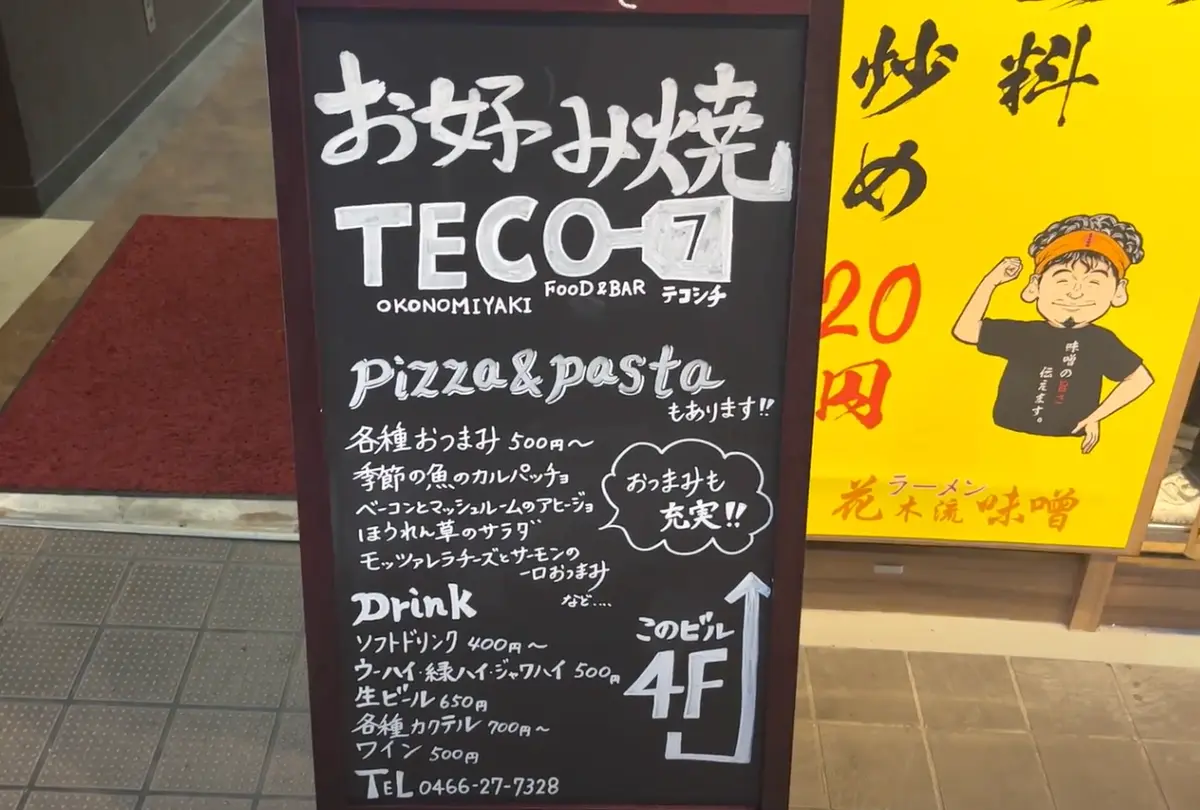 お好み焼
TECO 7
OKONOMIYAKI FOOD&BAR テコシチ
pizza&pasta
もあります!!
各種おつまみ 500円〜
季節の魚のカルパッチョ
ベーコンとマッシュルームのアヒージョ
ほうれん草のサラダ
モッツァレラチーズとサーモンの
一口おつまみ
など....
おつまみも
充実!!
Drink
ソフトドリンク 400円〜
ウーハイ・緑ハイ・ジャワハイ 500円
生ビール 650円
各種カクテル 700円〜
ワイン 500円
TEL 0466-27-7328
このビル
4F
料
炒め
20
円
味噌の旨さ
伝えます。
ラーメン
花木流味噌